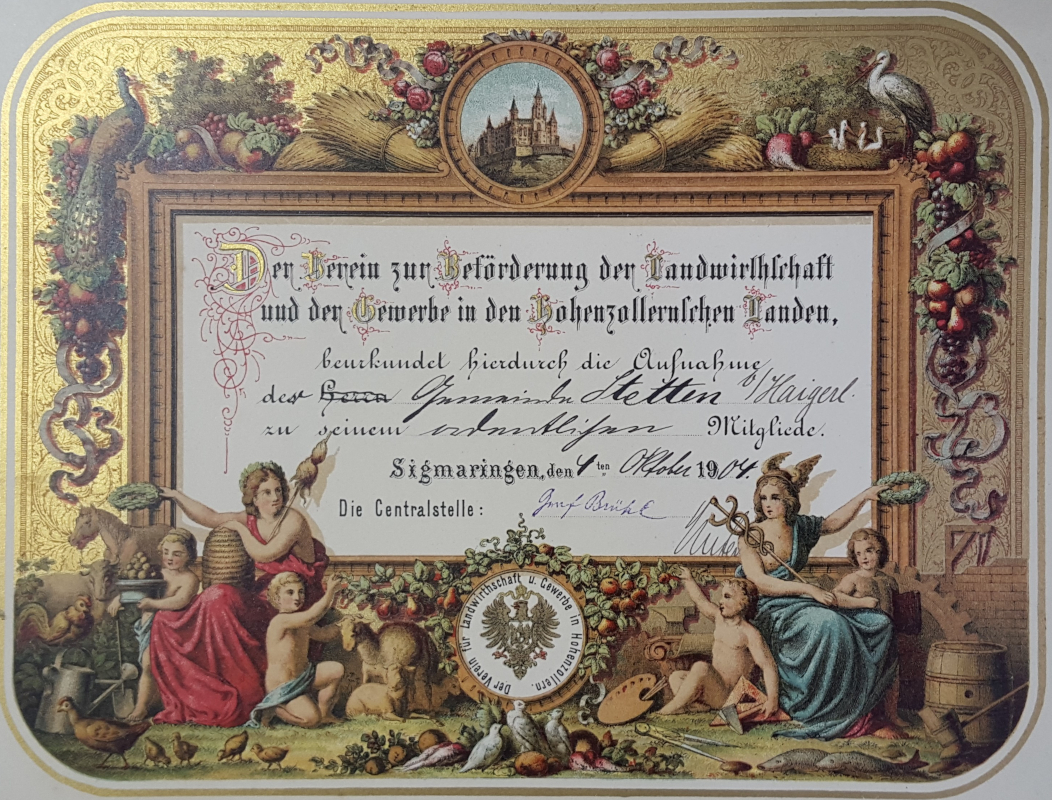 Der Verein zur Beförderung der Landwirthschaft
und der Gewerbe in den Hohenzollernschen Landen,
beurkundet hierdurch die Aufnahme
der Herrn Gemeinde Stetten b/Haigerl.
zu seinem ordentlichen Mitgliede.
Sigmaringen, den 4ten Oktober 1904.
Die Centralstelle: Graf Brühl
Der Verein für Landwirthschaft u. Gewerbe in Hohenzollern.